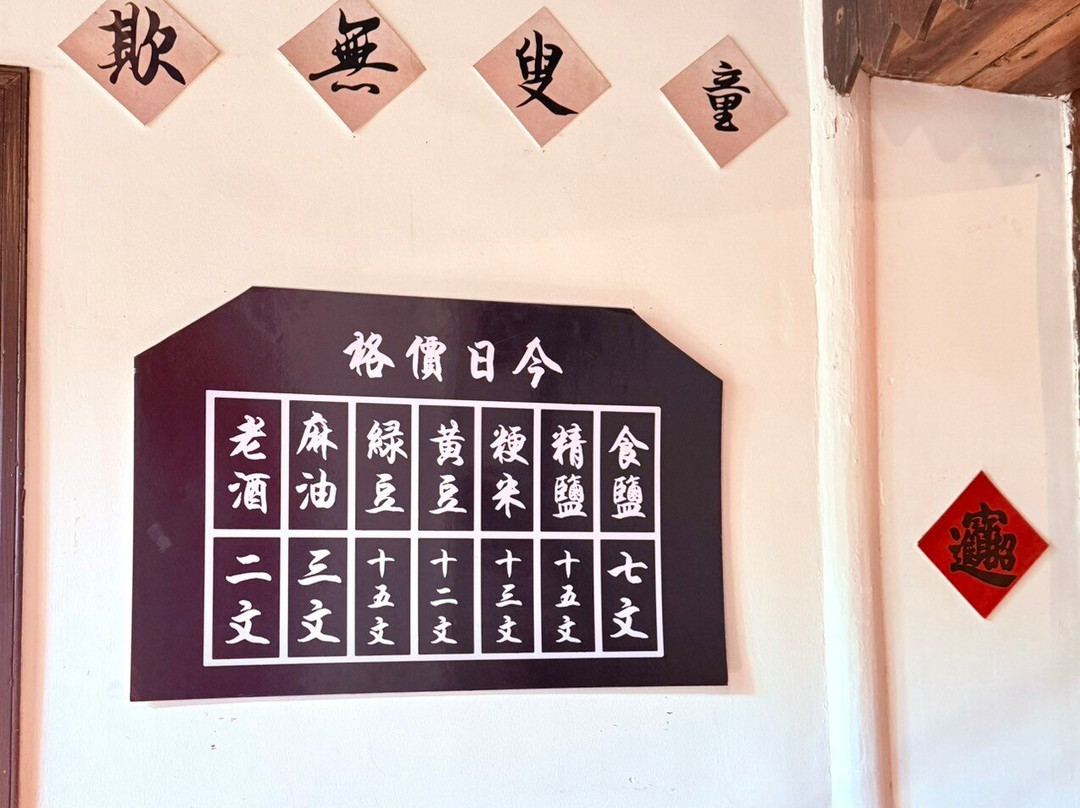 童叟無欺
今日價格
食鹽 七文
精鹽 十五文
粳米 十三文
黄豆 十二文
緑豆 十五文
麻油 三文
老酒 二文
招財進寶